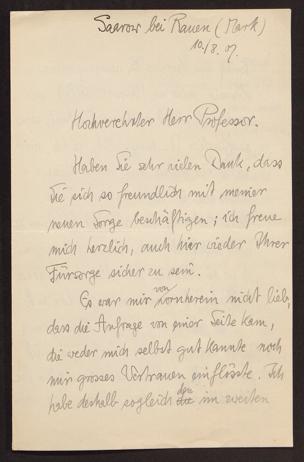 Saarow bei Rauen (Mark)
10./8. 07.
Hochverehrter Herr Professor.
Haben Sie sehr vielen Dank, dass
Sie sich so freundlich mit meiner
neuen Sorge beschäftigen; ich freue
mich herzlich, auch hier wieder Ihrer
Fürsorge sicher zu sein.
Es war mir von vornherein nicht lieb,
dass die Anfrage von einer Seite kam,
die weder mich selbst gut kannte noch
mir grosses Vertrauen einflösste. Ich
habe deshalb sogleich im zweiten